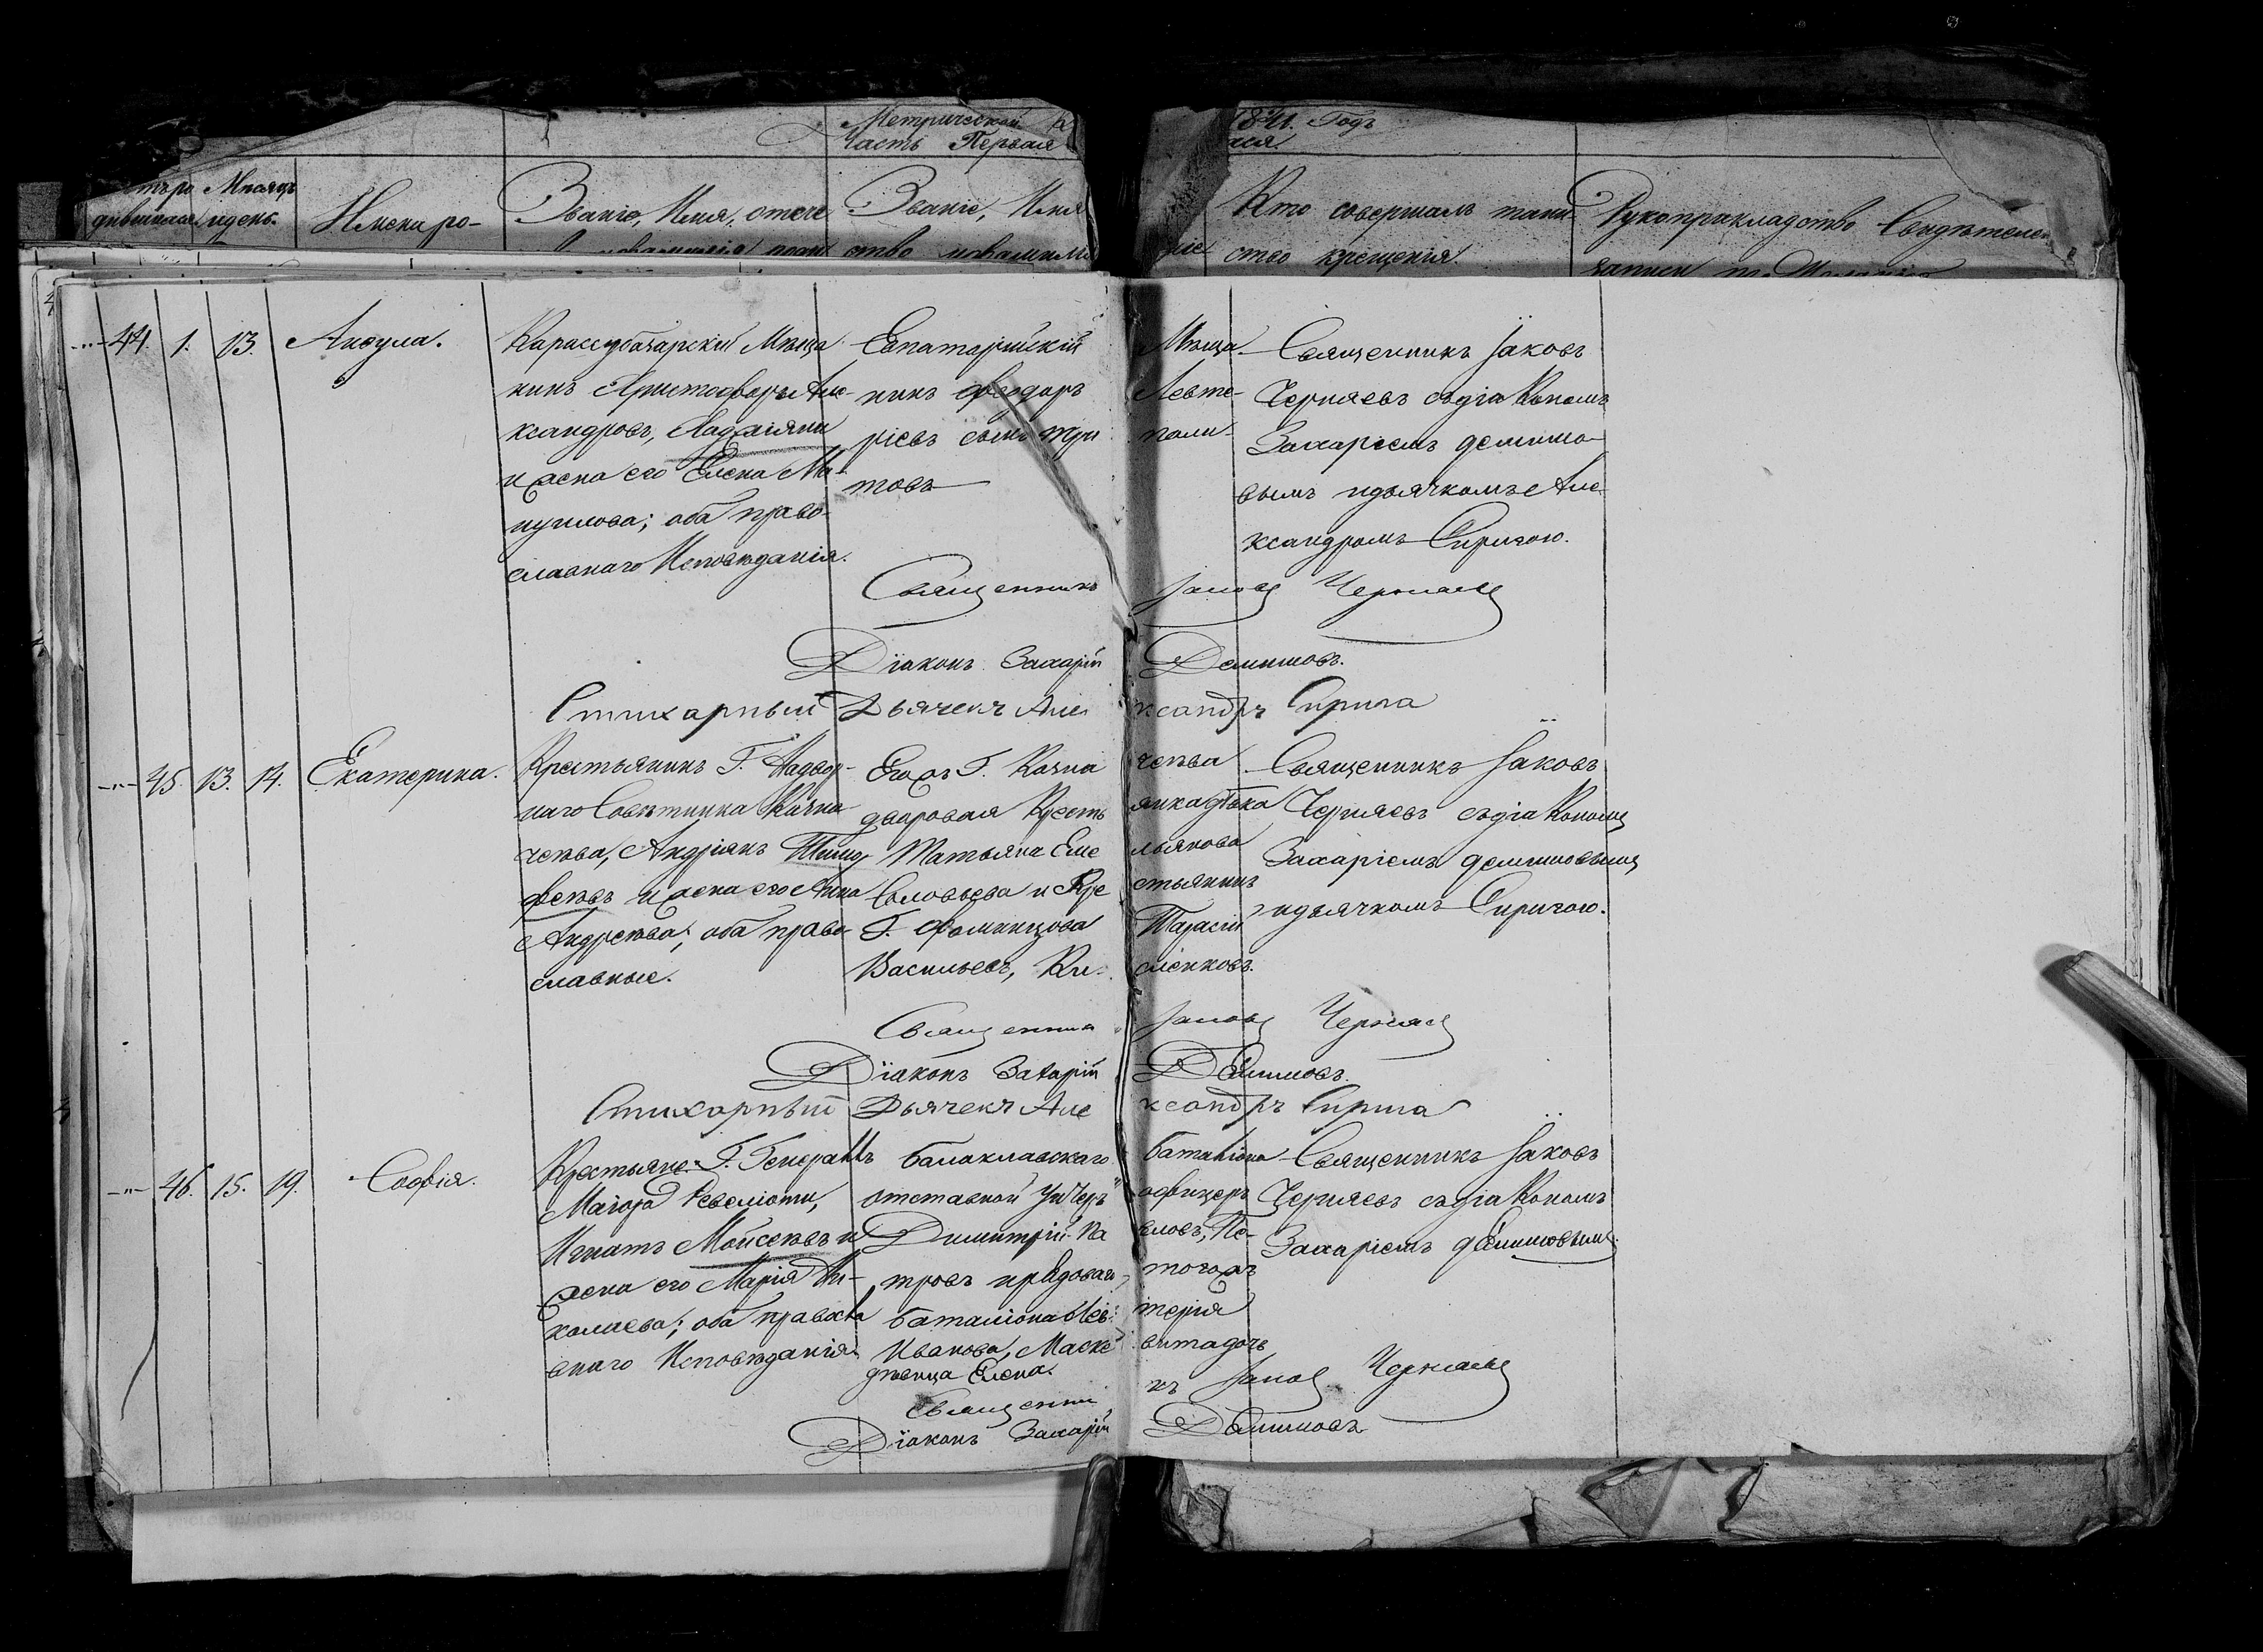 Метрической
Часть Первая
1841. Годъ
Мѣсяцъ
и день.
Имена ро-
Званіе, Имя, отече
Званіе, Имя
ство
Кто совершалъ таин-
ство крещенія.
Рукоприкладство Свидѣтелей
записи
44. 1. 13. Аксула.
Карассубазарскій Мѣща
нинъ Христофоръ Але-
ксандровъ,
и жена его Елена Ма-
нуилова; оба право-
славнаго Исповѣданія.
Евпаторійскій Мѣща-
нинъ Феодоръ Левте-
ріевъ сынъ Три
товъ
Священникъ Іаковъ
Черняевъ съ діакономъ
Захаріемъ Демишо-
вымъ и дьячкомъ Але-
ксандромъ Сиригою.
Священникъ Іаковъ Черняевъ
Діаконъ Захарій Демишовъ.
Стихарный Дьячекъ Александръ Сирига
45. 13. 14. Екатерина.
Крестьянинъ Г. Надвор-
наго Совѣтника Казна-
чеева, Андріянъ Тимо-
феевъ и жена его Анна
Андреева; оба право-
славные.
Его жъ Г. Казна чеева
дворовая Кресть янка дѣвка
Татьяна Еме льянова
Соловьева и Кре стьянинъ
Г. Фоминцова Тарасій
Васильевъ,
Священникъ Іаковъ
Черняевъ съ діакономъ
Захаріемъ Демишовымъ
и дьячкомъ Сиригою.
Священникъ Іаковъ Черняевъ
Діаконъ Захарій Демишовъ.
Стихарный Дьячекъ Александръ Сирига
46. 15. 19. Софія.
Крестьяне Г. Генералъ
Маіора Ревеліоти,
Игнатъ Моисеевъ и
жена его Марія Ни-
колаева; оба правосла
внаго Исповѣданія.
Балаклавскаго баталіона
отставной Унтеръ офицеръ
Димитрій Па вловъ, Пе-
тровъ и рядоваго того жъ
баталіона
Иванова,
дѣвица Елена.
Священникъ Іаковъ
Черняевъ съ діакономъ
Захаріемъ Демишовымъ.
Священникъ Іаковъ Черняевъ
Діаконъ Захарій Демишовъ